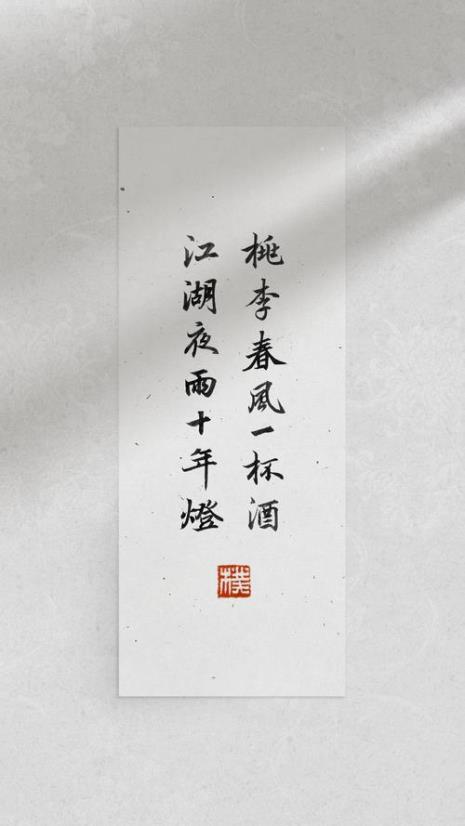 桃李春風一杯酒
江湖夜雨十年燈
樸